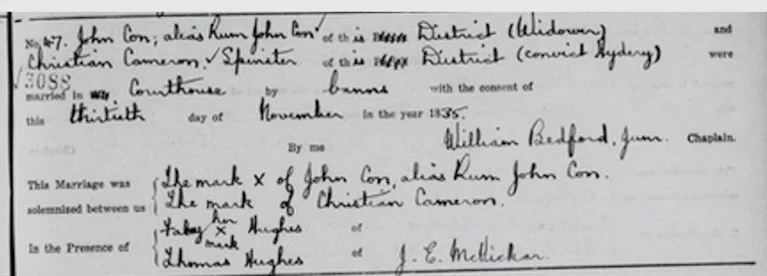 No. 47. John Con; alias Rum John Con of this District (Widower) and
Christian Cameron, Spinster of this District (convict
were
3088
married in Courthouse by banns with the consent of
this thirtieth day of November in the year 1835.
By me William Bedford, Junr. Chaplain.
This Marriage was solemnized between us
The mark x of John Con, alias Rum John Con.
The mark of Christian Cameron.
In the Presence of
her x mark Hughes of
Thomas Hughes of J. E.